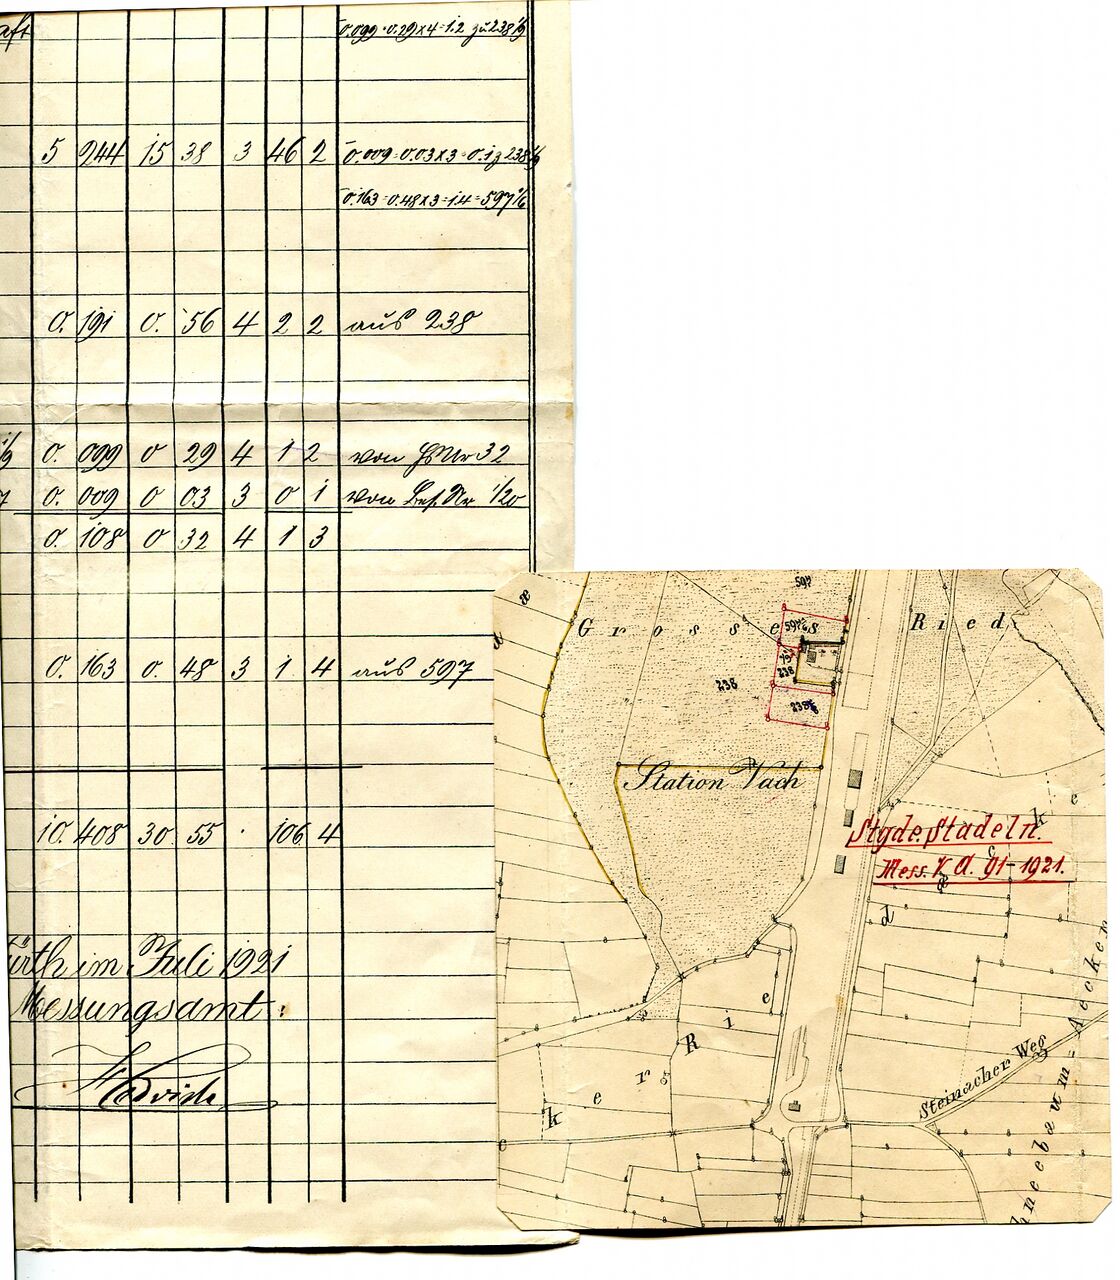 aft
0.099 · 0.29 x 4 = 1.2 zu 238 1/9
5 244 15 38 3 46 2 0.009 = 0.03 x 3 = 0.1 z 238 1/9
0.163 = 0.48 x 3 = 1.4 = 597 1/6
0. 191 0. 56 4 2 2 aus 238
0. 099 0 29 4 1 2 von HsNr 32
0. 009 0 03 3 0 1 von Bes. Nr 1/20
0. 108 0 32 4 1 3
0. 163 0. 48 3 1 4 aus 597
10. 408 30. 55 · 106 4
ürth im Juli 1921
Messungsamt:
597
Grosses
Ried
238
238
Station Vach
Stgde. Stadeln.
Mess. V. A. 91-1921.
Ri
e
r
e
k
e
d
Steinacher Weg
hneebaum=Aecker